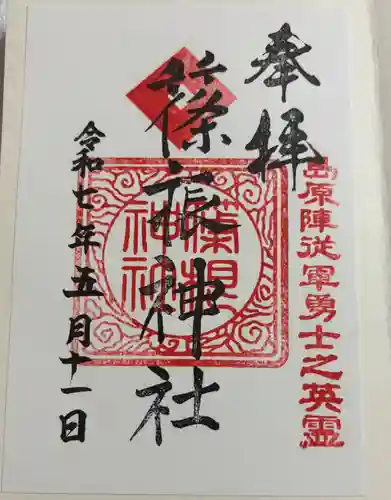 奉拝
島原陣従軍勇士之英霊
篠根神社
篠根神社
令和七年五月十一日